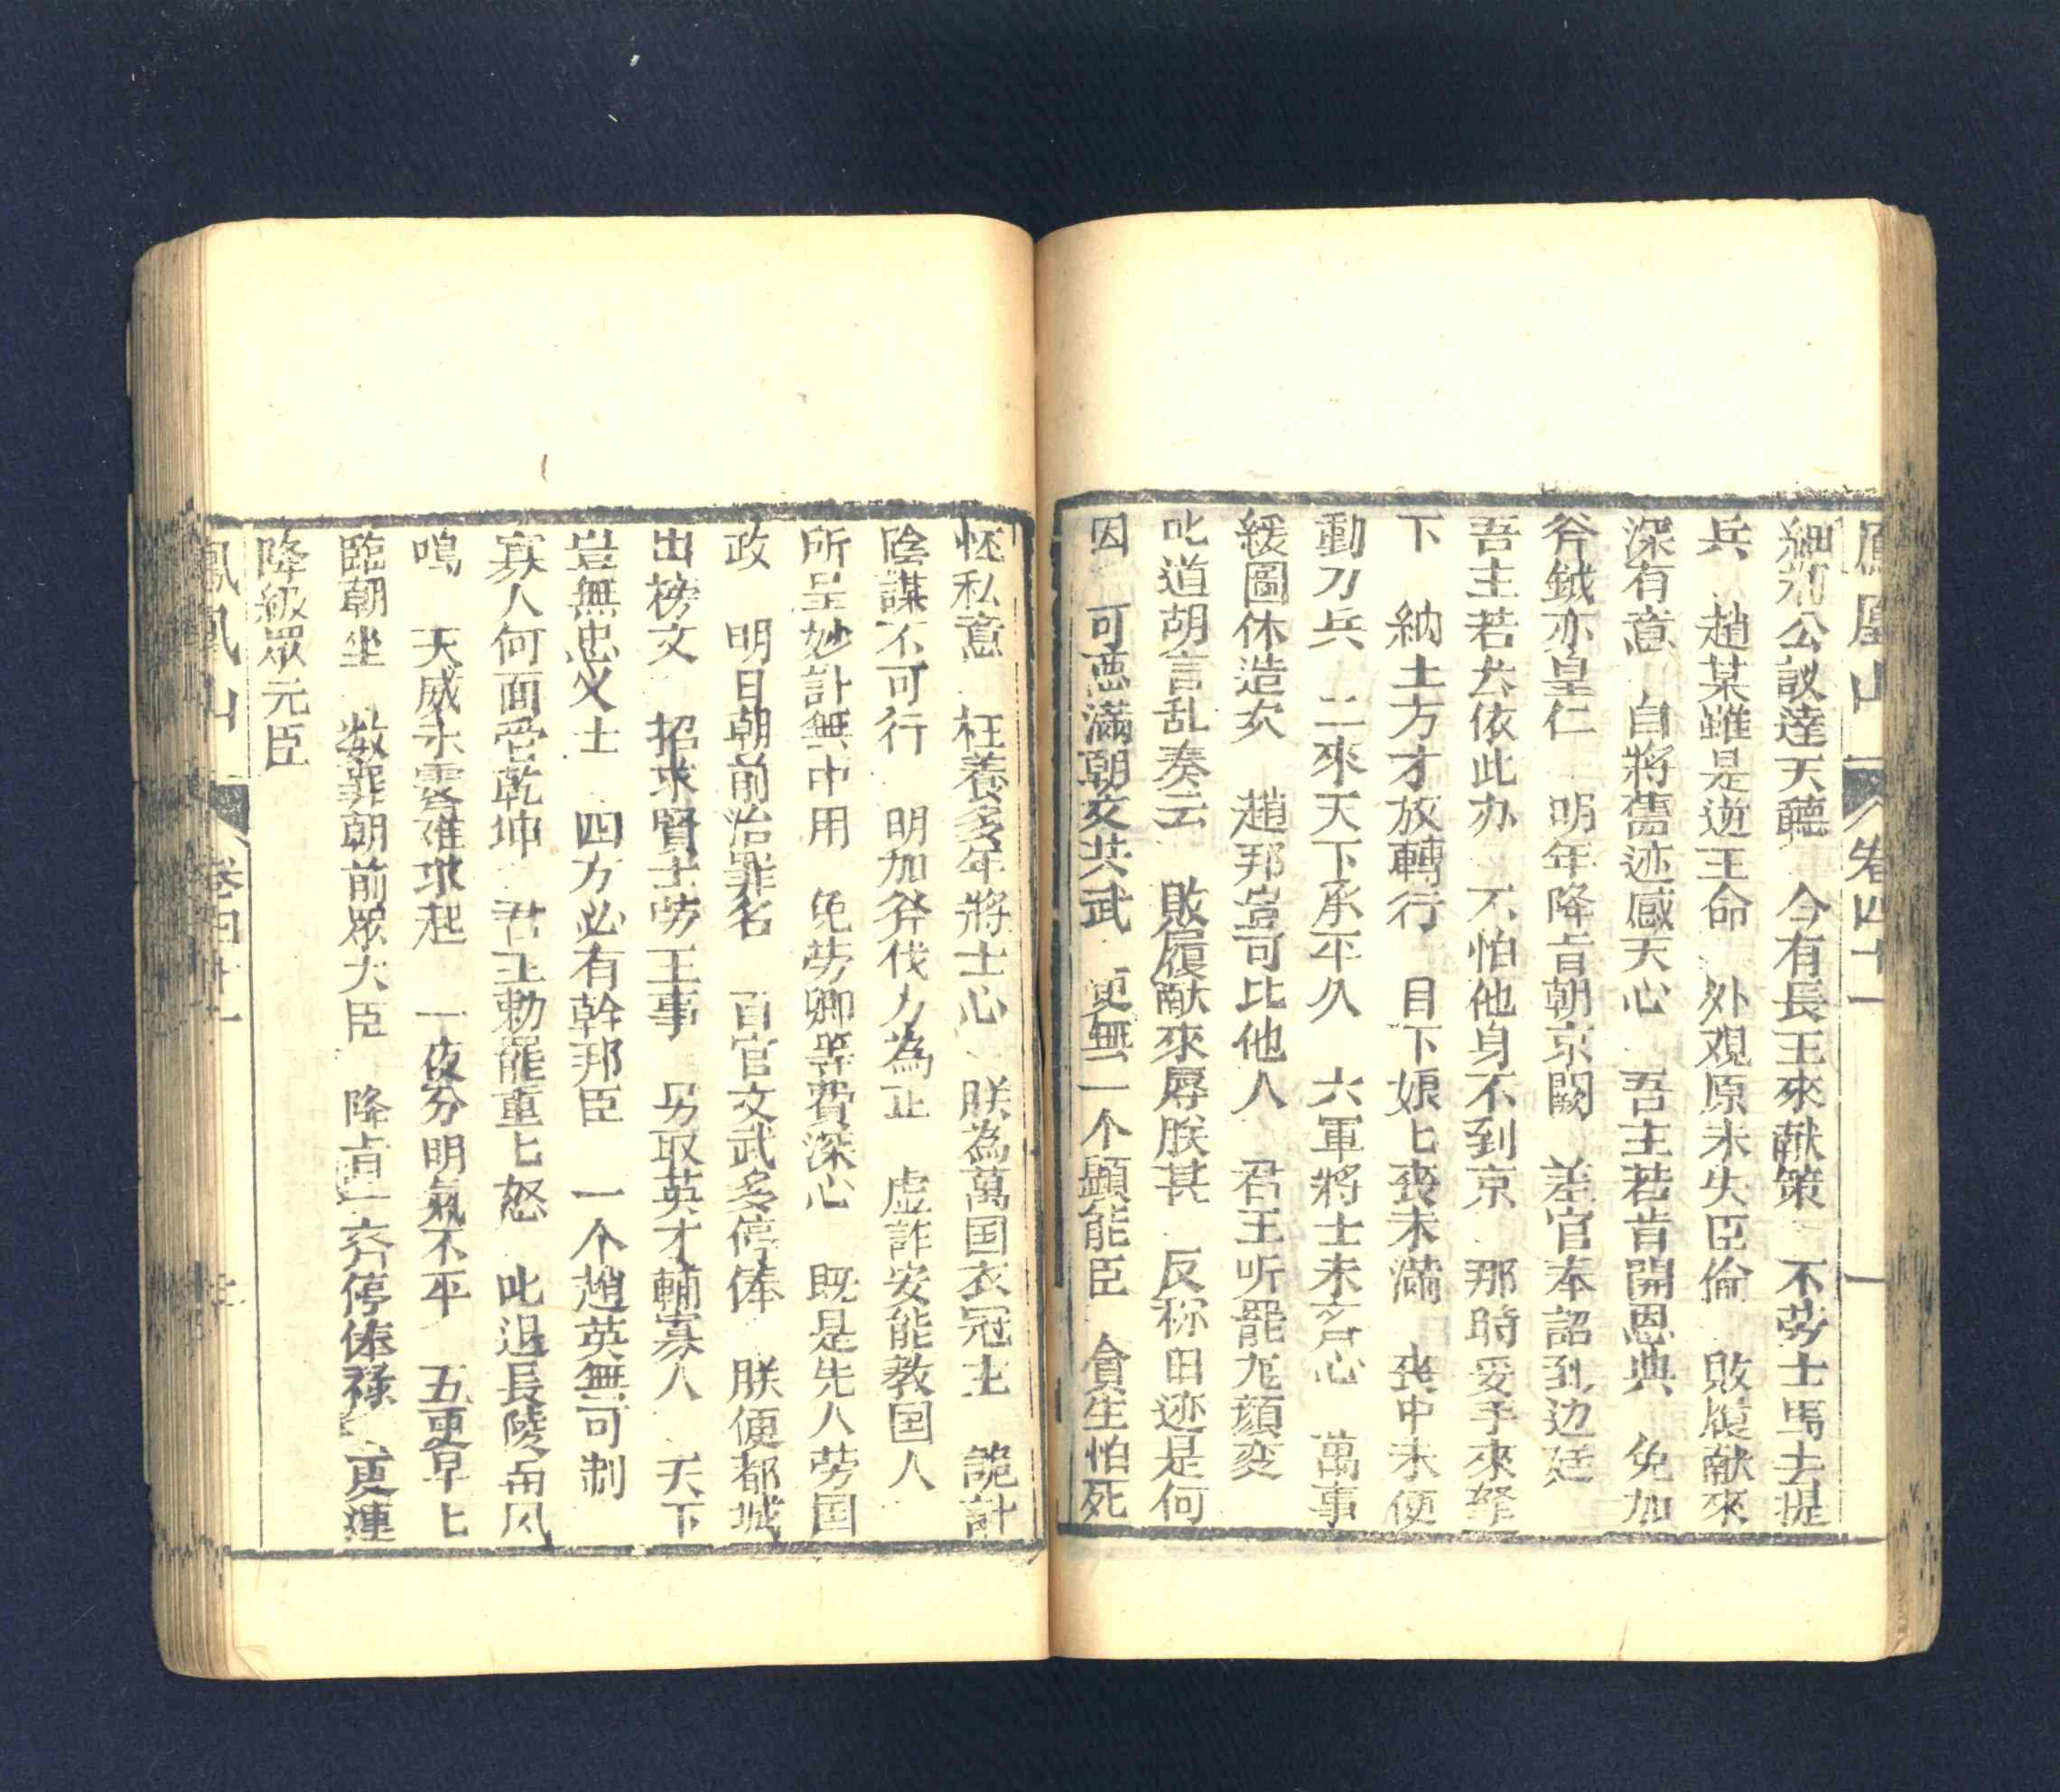 鳳凰山 卷四十一
細利公議達天聽 今有長王來献策 不劳士馬去提
兵 趙某雖是逆王命 外观原未失臣倫 敗履献來
深有意 自將舊迹感天心 吾主若肯開恩典 免加
斧鉞亦皇仁 明年降旨朝京闕 差官奉詔到边廷
吾主若云依此办 不怕他身不到京 那時妥手來拏
下 納土方才放轉行 目下娘匕丧未滿 丧中未便
動刀兵 二來天下承平久 六軍將士未齐心 萬事
緩圖休造次 趙邦豈可比他人 君王听罷龙顔変
叱道胡言乱奏云 敗履献來辱朕甚 反称旧迹是何
因 可惡滿朝文共武 更無一个顯能臣 貪生怕死
怀私意 枉養多年將士心 朕為萬国衣冠主 詭計
陰謀不可行 明加斧伐方為正 虚詐安能教国人
所呈妙計無中用 免劳卿等費深心 既是先人劳国
政 明日朝前治罪名 百官文武多停俸 朕便都城
出榜文 招求賢士劳王事 另取英才輔寡人 天下
豈無忠义士 四方必有幹邦臣 一个趙英無可制
寡人何面管乾坤 君王勅罷重匕怒 叱退長陵甬风
鳴 天威未霽难求起 一夜分明氣不平 五更早匕
臨朝坐 数罪朝前眾大臣 降旨一齐停俸禄 更連
降級眾元臣
鳳凰山 卷四十一